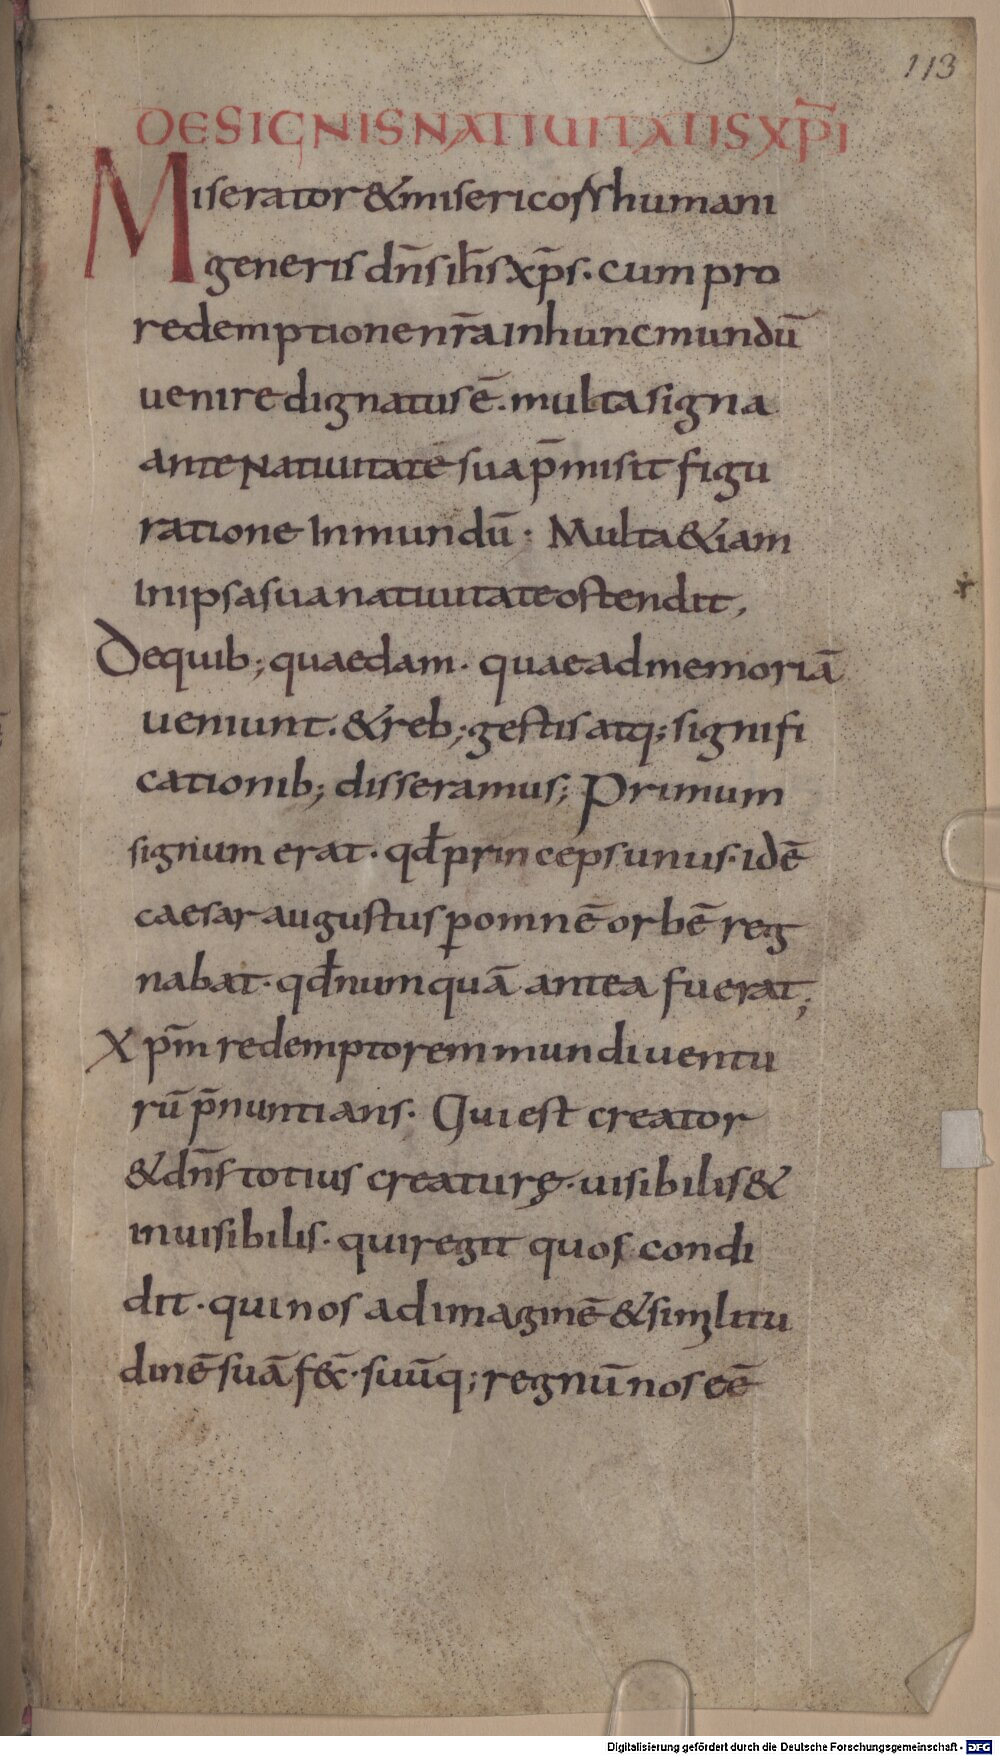 113
DE SIGNIS NATIUITATIS XP̄I
Miserator & misericors humani
generis dn̄s ih̄s xp̄s· cum pro
redemptione nr̄a In hunc mundū
uenire dignatus ē· multa signa
ante natiuitatē sua p̄misit figu
ratione In mundū· Multa & iam
In ipsa sua natiuitate ostendit,
De quib; quaedam· quae ad memoriā
ueniunt· & reb; gestis atq; signifi
cationib; disseramus; Primum
signum erat· qđ princeps unus· idē
caesar augustus ꝑ omnē orbē reg
nabat· qđ numquā antea fuerat;
Xp̄m redemptorem mundi uentu
rū p̄nuntians· Qui est creator
& dn̄s totius creaturę· uisibilis &
inuisibilis· qui regit quos condi
dit· qui nos ad imaginē & similitu
dinē suā fec̄· suūq; regnū nos eē
Digitalisierung gefördert durch die Deutsche Forschungsgemeinschaft - DFG